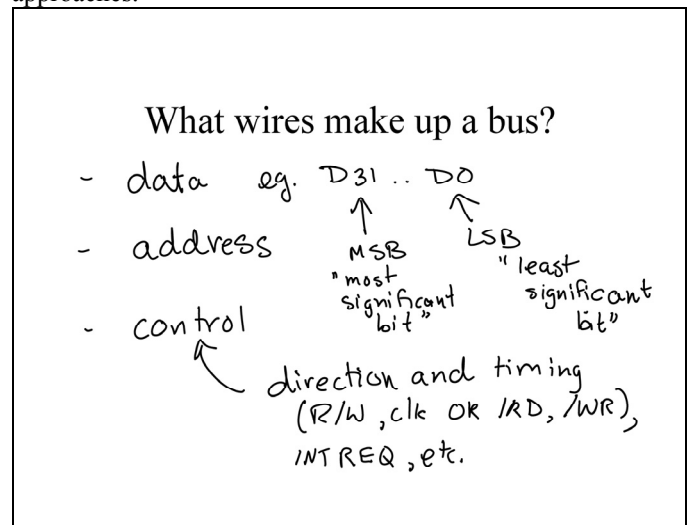 approaches.
What wires make up a bus?
- data eg. D31 .. D0
- address
MSB
"most
significant
bit"
LSB
"least
significant
bit"
- control
direction and timing
(R/W, clk OR /RD, /WR),
INTREQ, etc.